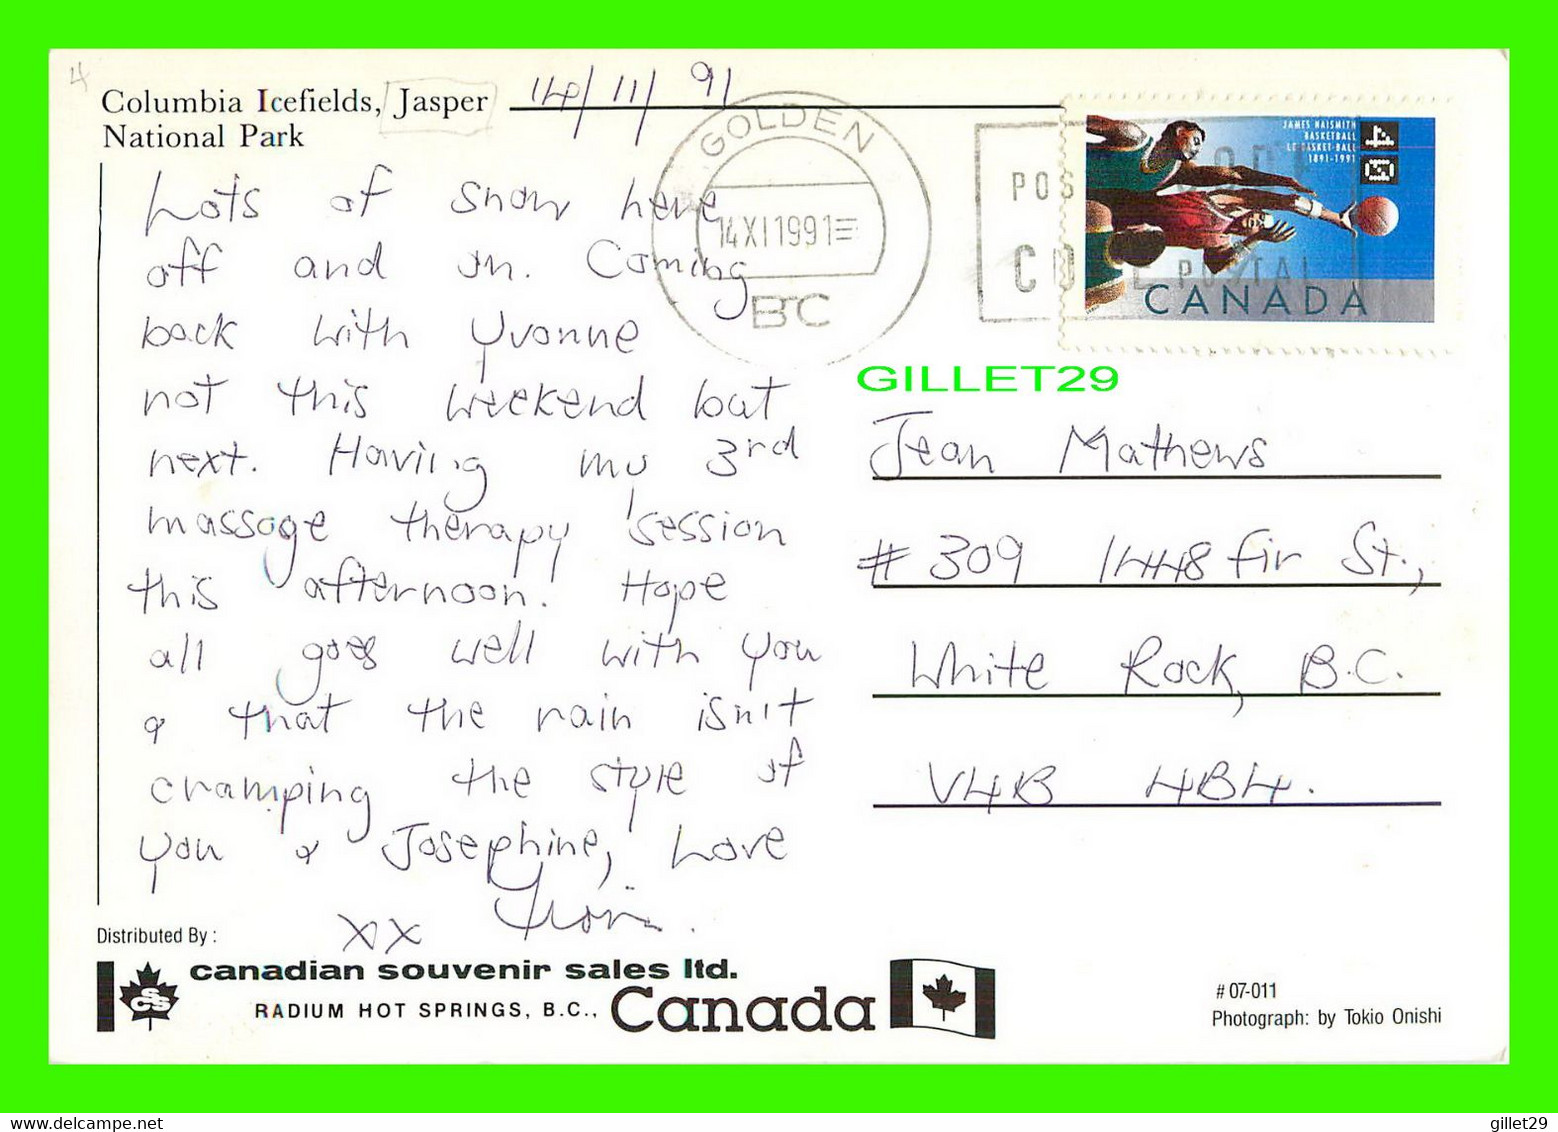 4
Columbia Icefields, Jasper
National Park
14/11/91
Lots of snow here
off and on. Coming
back with Yvonne
not this weekend but
next. Having my 3rd
massage therapy session
this afternoon. Hope
all goes well with you
& that the rain isn't
cramping the style of
you & Josephine, Love
xx
GOLDEN
14 XI 1991
BC
POS
POSTAL
JAMES NAISMITH
BASKETBALL
LE BASKET-BALL
1891-1991
40
CANADA
GILLET29
Jean Mathews
# 309 1448 Fir St.,
White Rock, B.C.
V4B 4B4.
Distributed By :
CSS
canadian souvenir sales ltd.
RADIUM HOT SPRINGS, B.C., Canada
# 07-011
Photograph: by Tokio Onishi
gillet29
gillet29